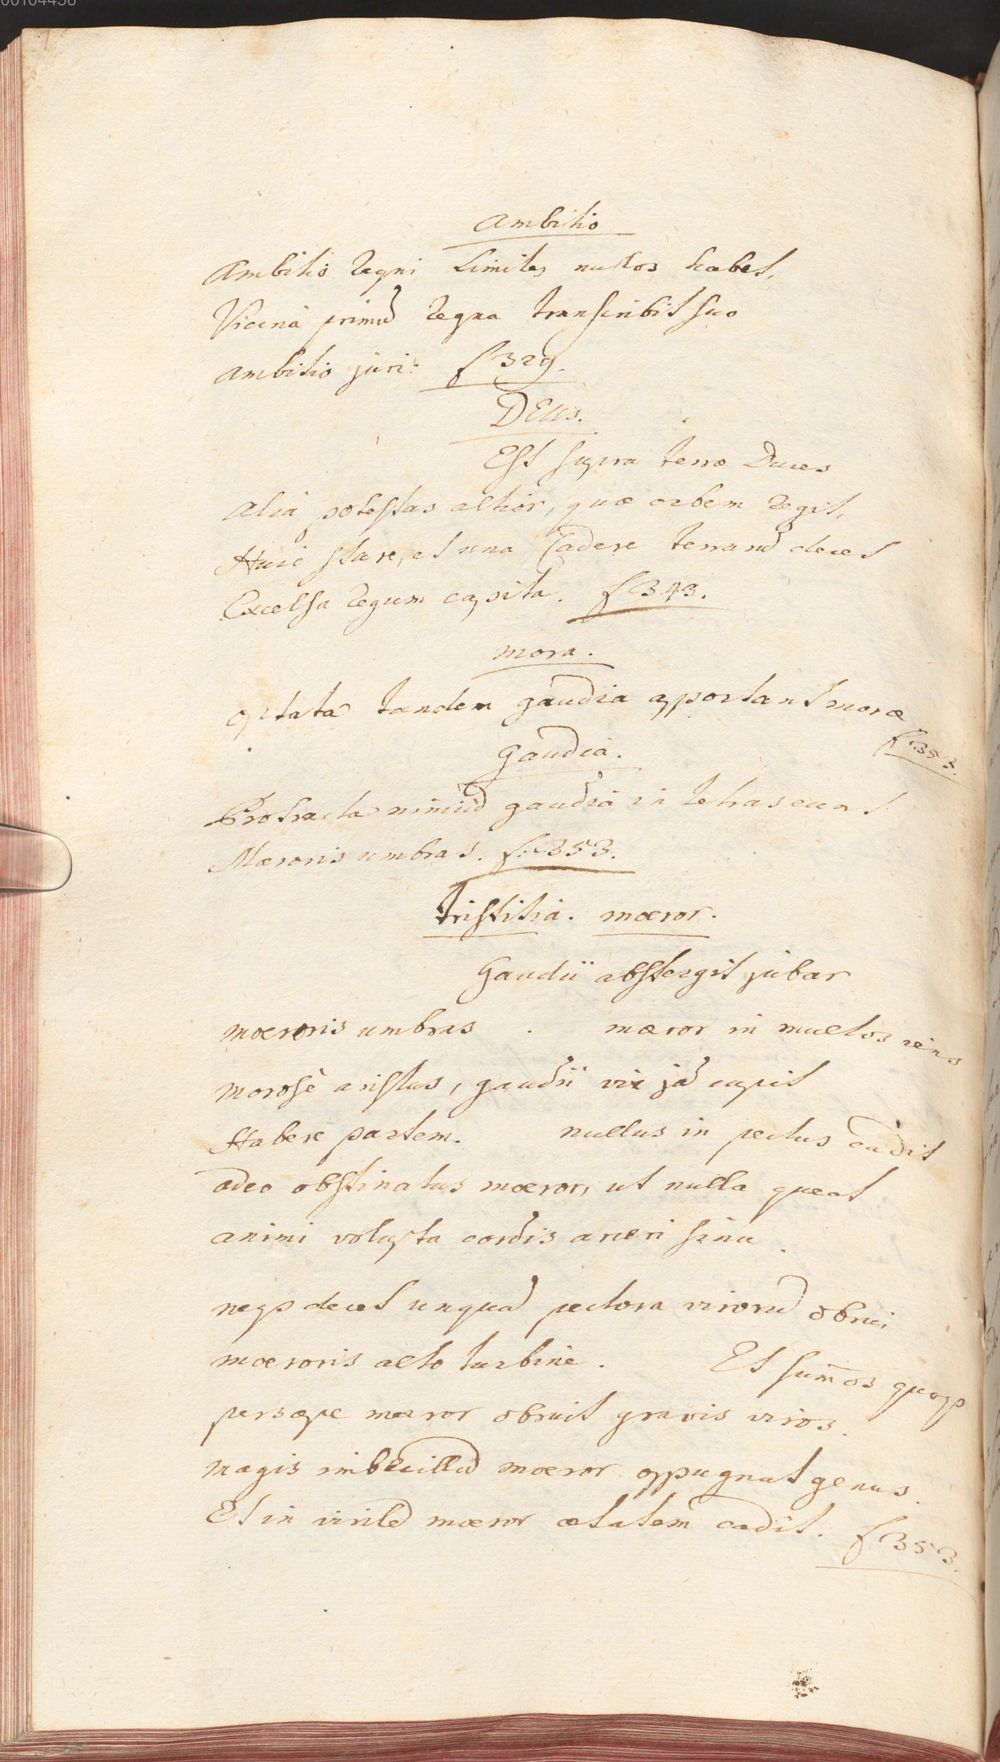 00104436
Ambitio
Ambitio regni Limites nullos habet,
Vicina primũ regna transcribit suo
ambitio juri: f 329.
DEUS.
Est supra terræ Duces
Alia potestas altior, quæ orbem regit,
Huic stare, et una Cadere terrarũ decet
Excelsa regum capita. f 343.
mora.
optata tandem gaudia apportant moræ
f 353.
Gaudia.
Protracta nimiũ gaudia in tetras eunt
Mæroris umbras. f. 353.
tristitia. mæror.
Gaudii abstergit jubar
mœroris umbras . mæror in multos
morosè aristus, gaudii vix jã cupit
Habere partem. nullus in pectus cadit
adeo obstinatus mœror, ut nulla queat
animi volupta cordis arceri sinu.
neqȝ decet unquã pectora virorũ obrui
mœroris alto turbine. Et sum̄os quoqȝ
persæpe mæror obruit gravis viros.
magis imbecillũ mœror oppugnat genus.
Et in virilẽ mæror ætatem cadit. f 353.